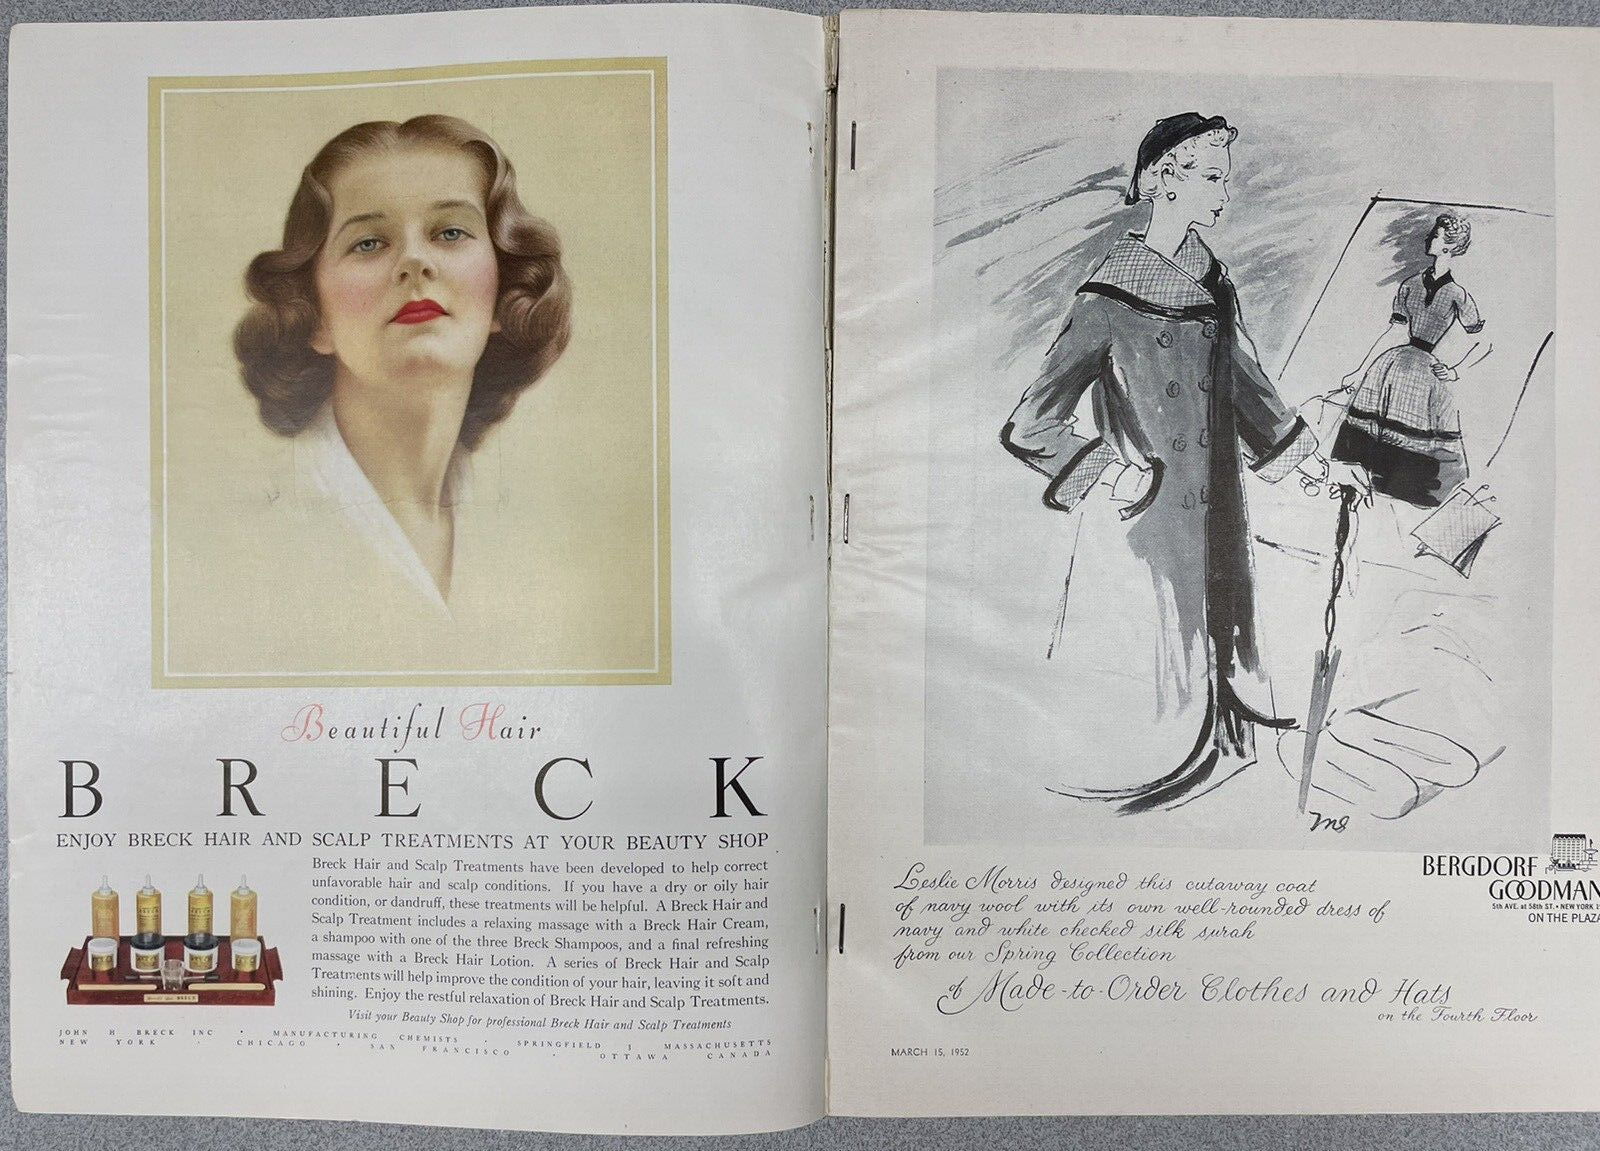 Beautiful Hair
BRECK
ENJOY BRECK HAIR AND SCALP TREATMENTS AT YOUR BEAUTY SHOP
Breck Hair and Scalp Treatments have been developed to help correct
unfavorable hair and scalp conditions. If you have a dry or oily hair
condition, or dandruff, these treatments will be helpful. A Breck Hair and
Scalp Treatment includes a relaxing massage with a Breck Hair Cream,
a shampoo with one of the three Breck Shampoos, and a final refreshing
massage with a Breck Hair Lotion. A series of Breck Hair and Scalp
Treatments will help improve the condition of your hair, leaving it soft and
shining. Enjoy the restful relaxation of Breck Hair and Scalp Treatments.
Visit your Beauty Shop for professional Breck Hair and Scalp Treatments
JOHN H BRECK INC · MANUFACTURING CHEMISTS · SPRINGFIELD 3 MASSACHUSETTS
NEW YORK · CHICAGO · SAN FRANCISCO · OTTAWA CANADA
BERGDORF
GOODMAN
5th AVE. at 58th ST. • NEW YORK
ON THE PLAZA
Leslie Morris designed this cutaway coat
of navy wool with its own well-rounded dress of
navy and white checked silk surah
from our Spring Collection
of Made-to-Order Clothes and Hats
on the Fourth Floor
MARCH 15, 1952